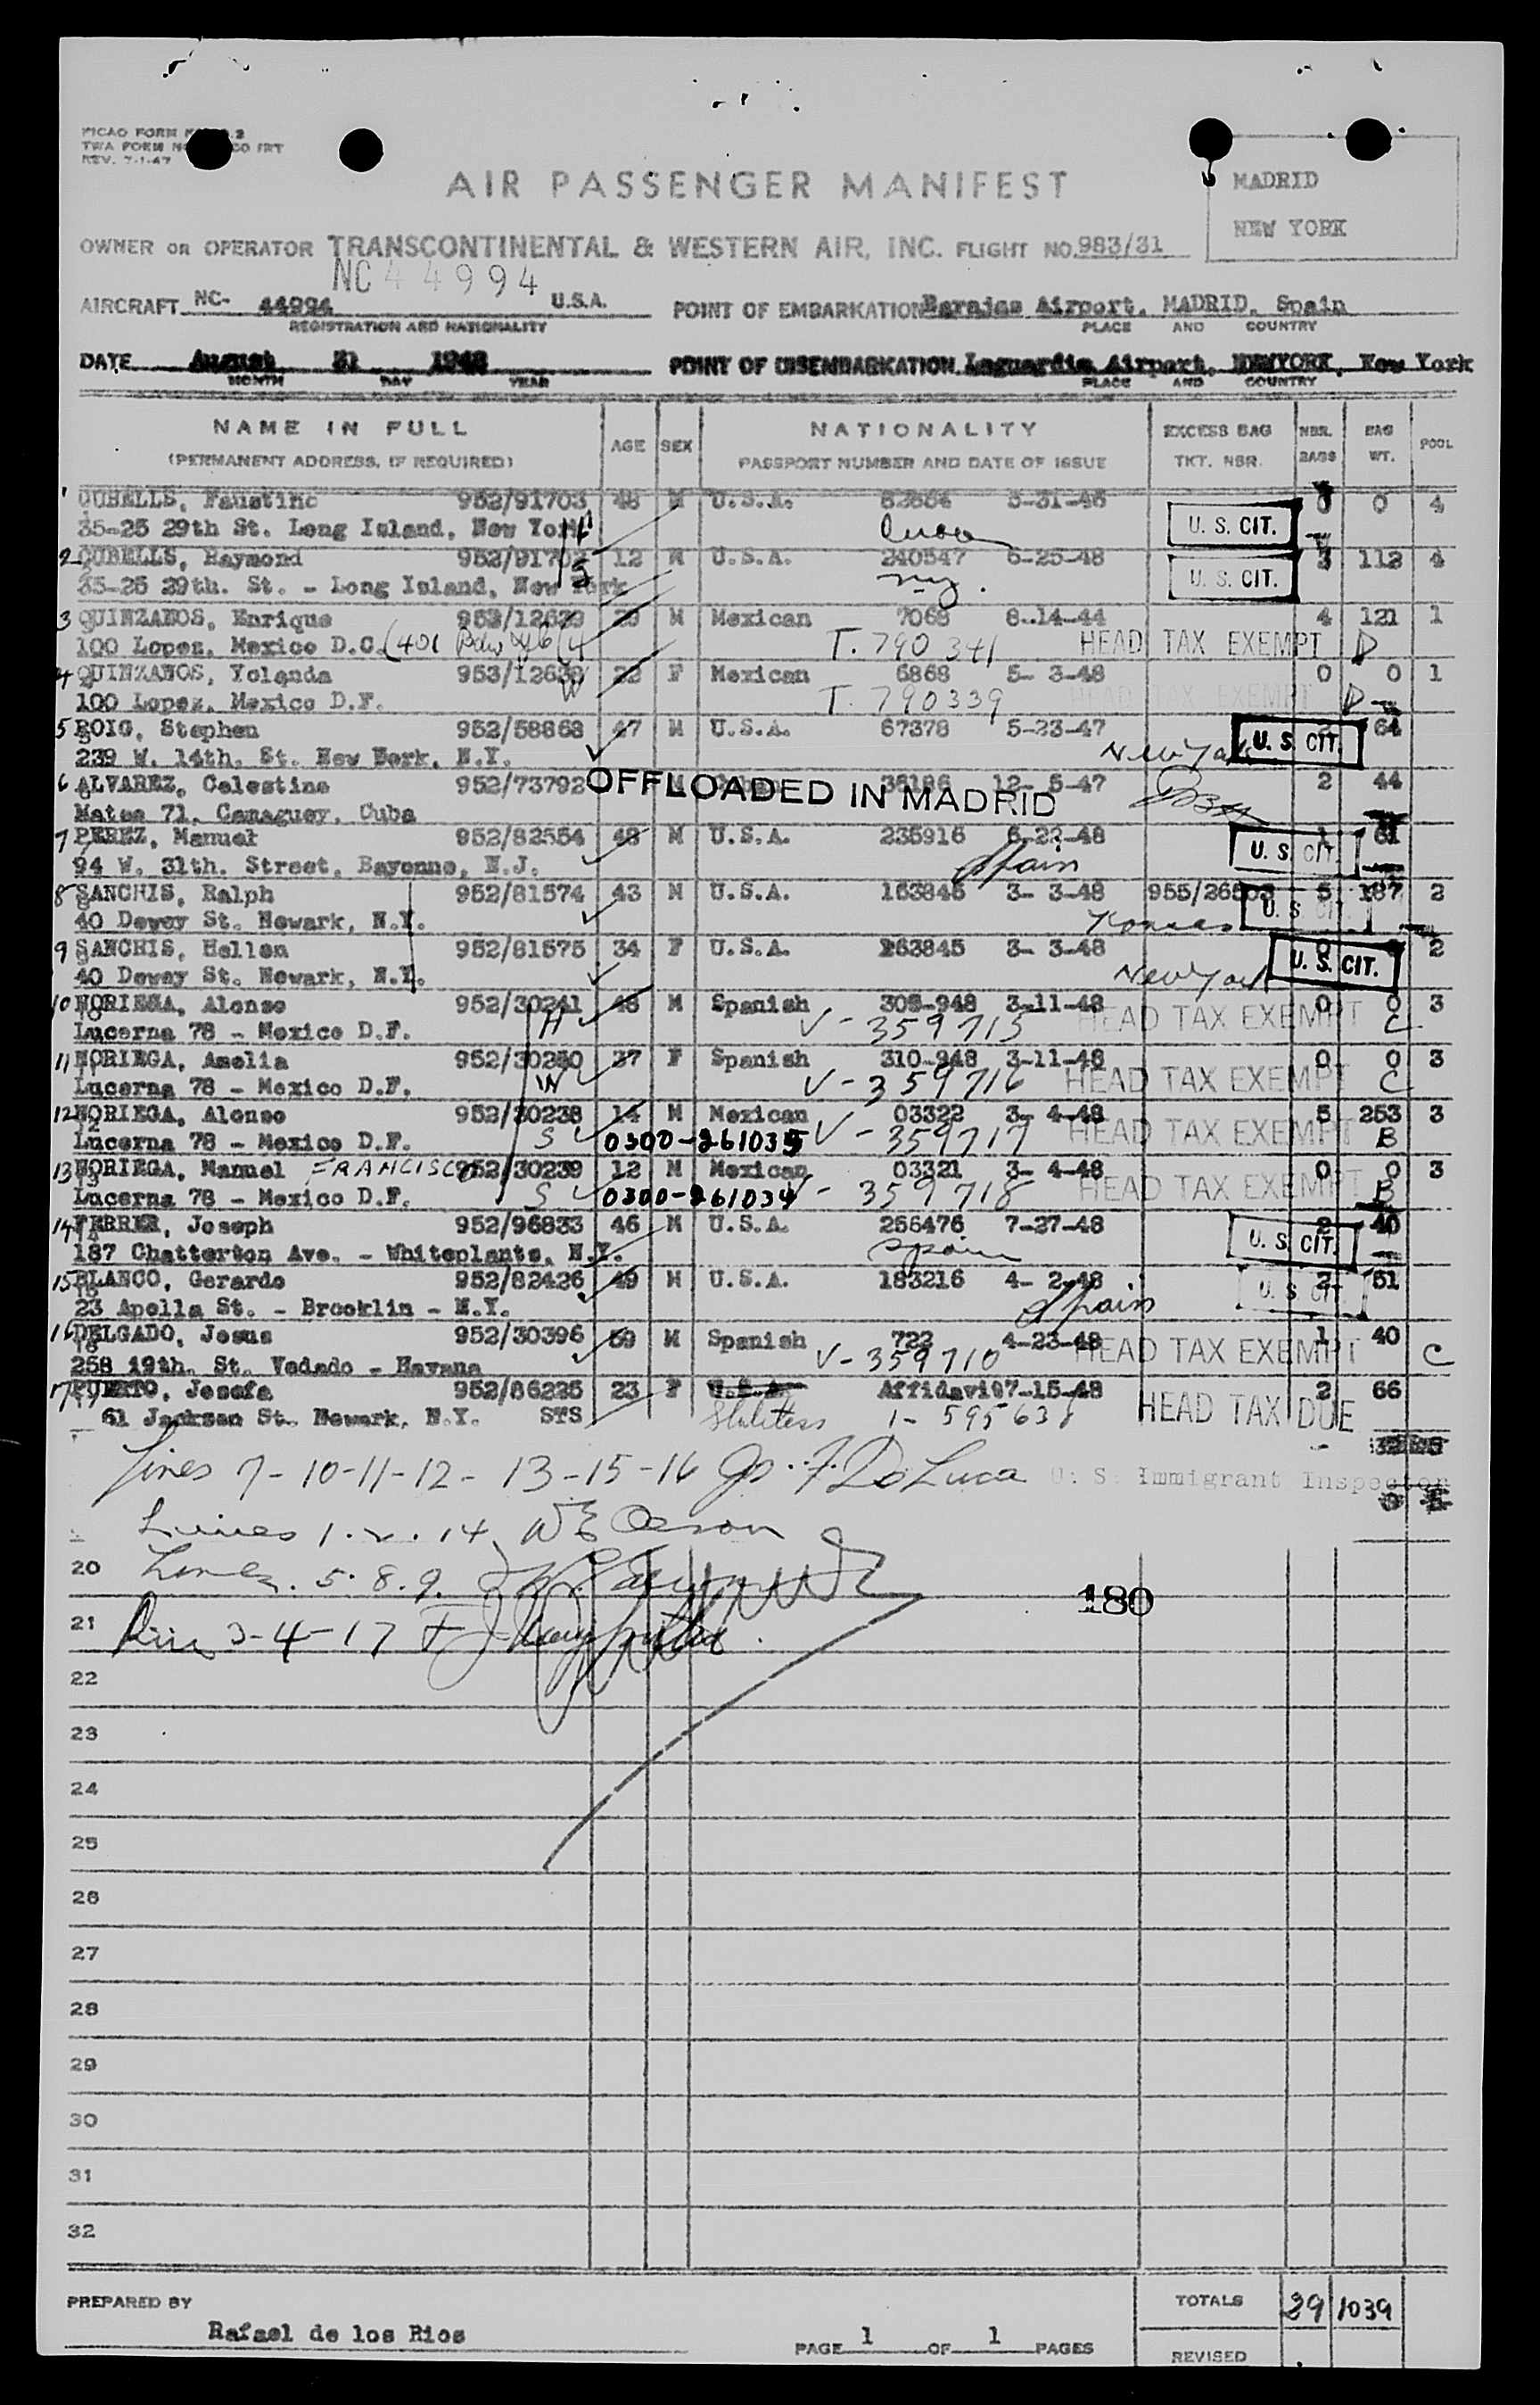 AIR PASSENGER MANIFEST
MADRID
NEW YORK
REV. 7-1-47
OWNER OR OPERATOR TRANSCONTINENTAL & WESTERN AIR, INC. FLIGHT NO. 983/31
NC 44994
AIRCRAFT NC- 44994 U.S.A. POINT OF EMBARKATION Barajas Airport, MADRID, Spain
REGISTRATION AND NATIONALITY PLACE AND COUNTRY
DATE August 31 1948 POINT OF DISEMBARKATION Laguardia Airport, NEWYORK, New York
MONTH DAY YEAR PLACE AND COUNTRY
NAME IN FULL AGE SEX NATIONALITY EXCESS BAG NBR. BAG POOL
(PERMANENT ADDRESS, IF REQUIRED) PASSPORT NUMBER AND DATE OF ISSUE TKT. NBR. BAGS WT.
1 CUBELLS, Faustino 952/91703 48 M U.S.A. 0 0 4
35-25 29th St. Long Island, New York H U. S. CIT.
2 CUBELLS, Raymond 952/91702 12 M U.S.A. 240547 6-25-48 3 112 4
35-25 29th. St. - Long Island, New York S ny. U. S. CIT.
3 QUINZANOS, Enrique 953/12629 29 M Mexican 7068 8-14-44 4 121 1
100 Lopez, Mexico D.C. T. 790341 HEAD TAX EXEMPT D
4 QUINZANOS, Yolanda 22 F Mexican 6868 5- 3-48 0 0 1
100 Lopez, Mexico D.F. W T. 790339 HEAD TAX EXEMPT D
5 ROIG, Stephen 952/58868 47 M U.S.A. 67378 5-23-47 2 64
239 W. 14th. St. New Work, N.Y. New York U. S. CIT.
6 ALVAREZ, Celestina 952/73792 OFFLOADED IN MADRID 36186 12- 5-47 2 44
Matea 71, Camaguey, Cuba
7 PEREZ, Manuel 952/82554 48 M U.S.A. 235916 6-22-48 1 61
94 W. 31th. Street, Bayonne, N.J. Spain U. S. CIT.
8 SANCHIS, Ralph 952/81574 43 M U.S.A. 163845 3- 3-48 5 187 2
40 Dewey St. Newark, N.Y. U. S. CIT.
9 SANCHIS, Hellen 952/81575 34 F U.S.A. 163845 3- 3-48 0 2
40 Dewey St. Newark, N.Y. New York U. S. CIT.
10 NORIEGA, Alonso 952/30241 48 M Spanish 305-948 3-11-48 0 0 3
Lucerna 78 - Mexico D.F. H V-359715 HEAD TAX EXEMPT C
11 NORIEGA, Amelia 952/30250 37 F Spanish 310-948 3-11-48 0 0 3
Lucerna 78 - Mexico D.F. W V-359716 HEAD TAX EXEMPT C
12 NORIEGA, Alonso 952/30238 14 M Mexican 03322 3- 4-48 5 253 3
Lucerna 78 - Mexico D.F. S 0300-261035 V-359717 HEAD TAX EXEMPT B
13 NORIEGA, Manuel FRANCISCO 952/30239 12 M Mexican 03321 3- 4-48 0 0 3
Lucerna 78 - Mexico D.F. S 0300-261034 V-359718 HEAD TAX EXEMPT B
14 FERRER, Joseph 952/96833 46 M U.S.A. 256476 7-27-48 2 40
187 Chatterton Ave. - Whiteplants, N.Y. Spain U. S. CIT.
15 BLANCO, Gerardo 952/82426 49 M U.S.A. 183216 4- 2-48 2 51
23 Apolla St. - Brooklin - N.Y. Spain U. S. CIT.
16 DELGADO, Jesus 952/30396 59 M Spanish 722 4-23-48 1 40
258 19th. St. Vedado - Havana V-359710 HEAD TAX EXEMPT C
17 PUERTO, Josefa 952/86225 23 F U.S.A. Affidavi07-15-48 2 66
61 Jackson St. Newark, N.Y. STS Statless HEAD TAX DUE
Lines 7-10-11-12-13-15-16 F. DeLuca U. S. Immigrant Inspector
Lines 1. 2. 14
20 Lines. 5. 8. 9.
180
21 3-4-17
22
23
24
25
26
27
28
29
30
31
32
PREPARED BY TOTALS 29 1039
Rafael de los Rios
PAGE 1 OF 1 PAGES REVISED